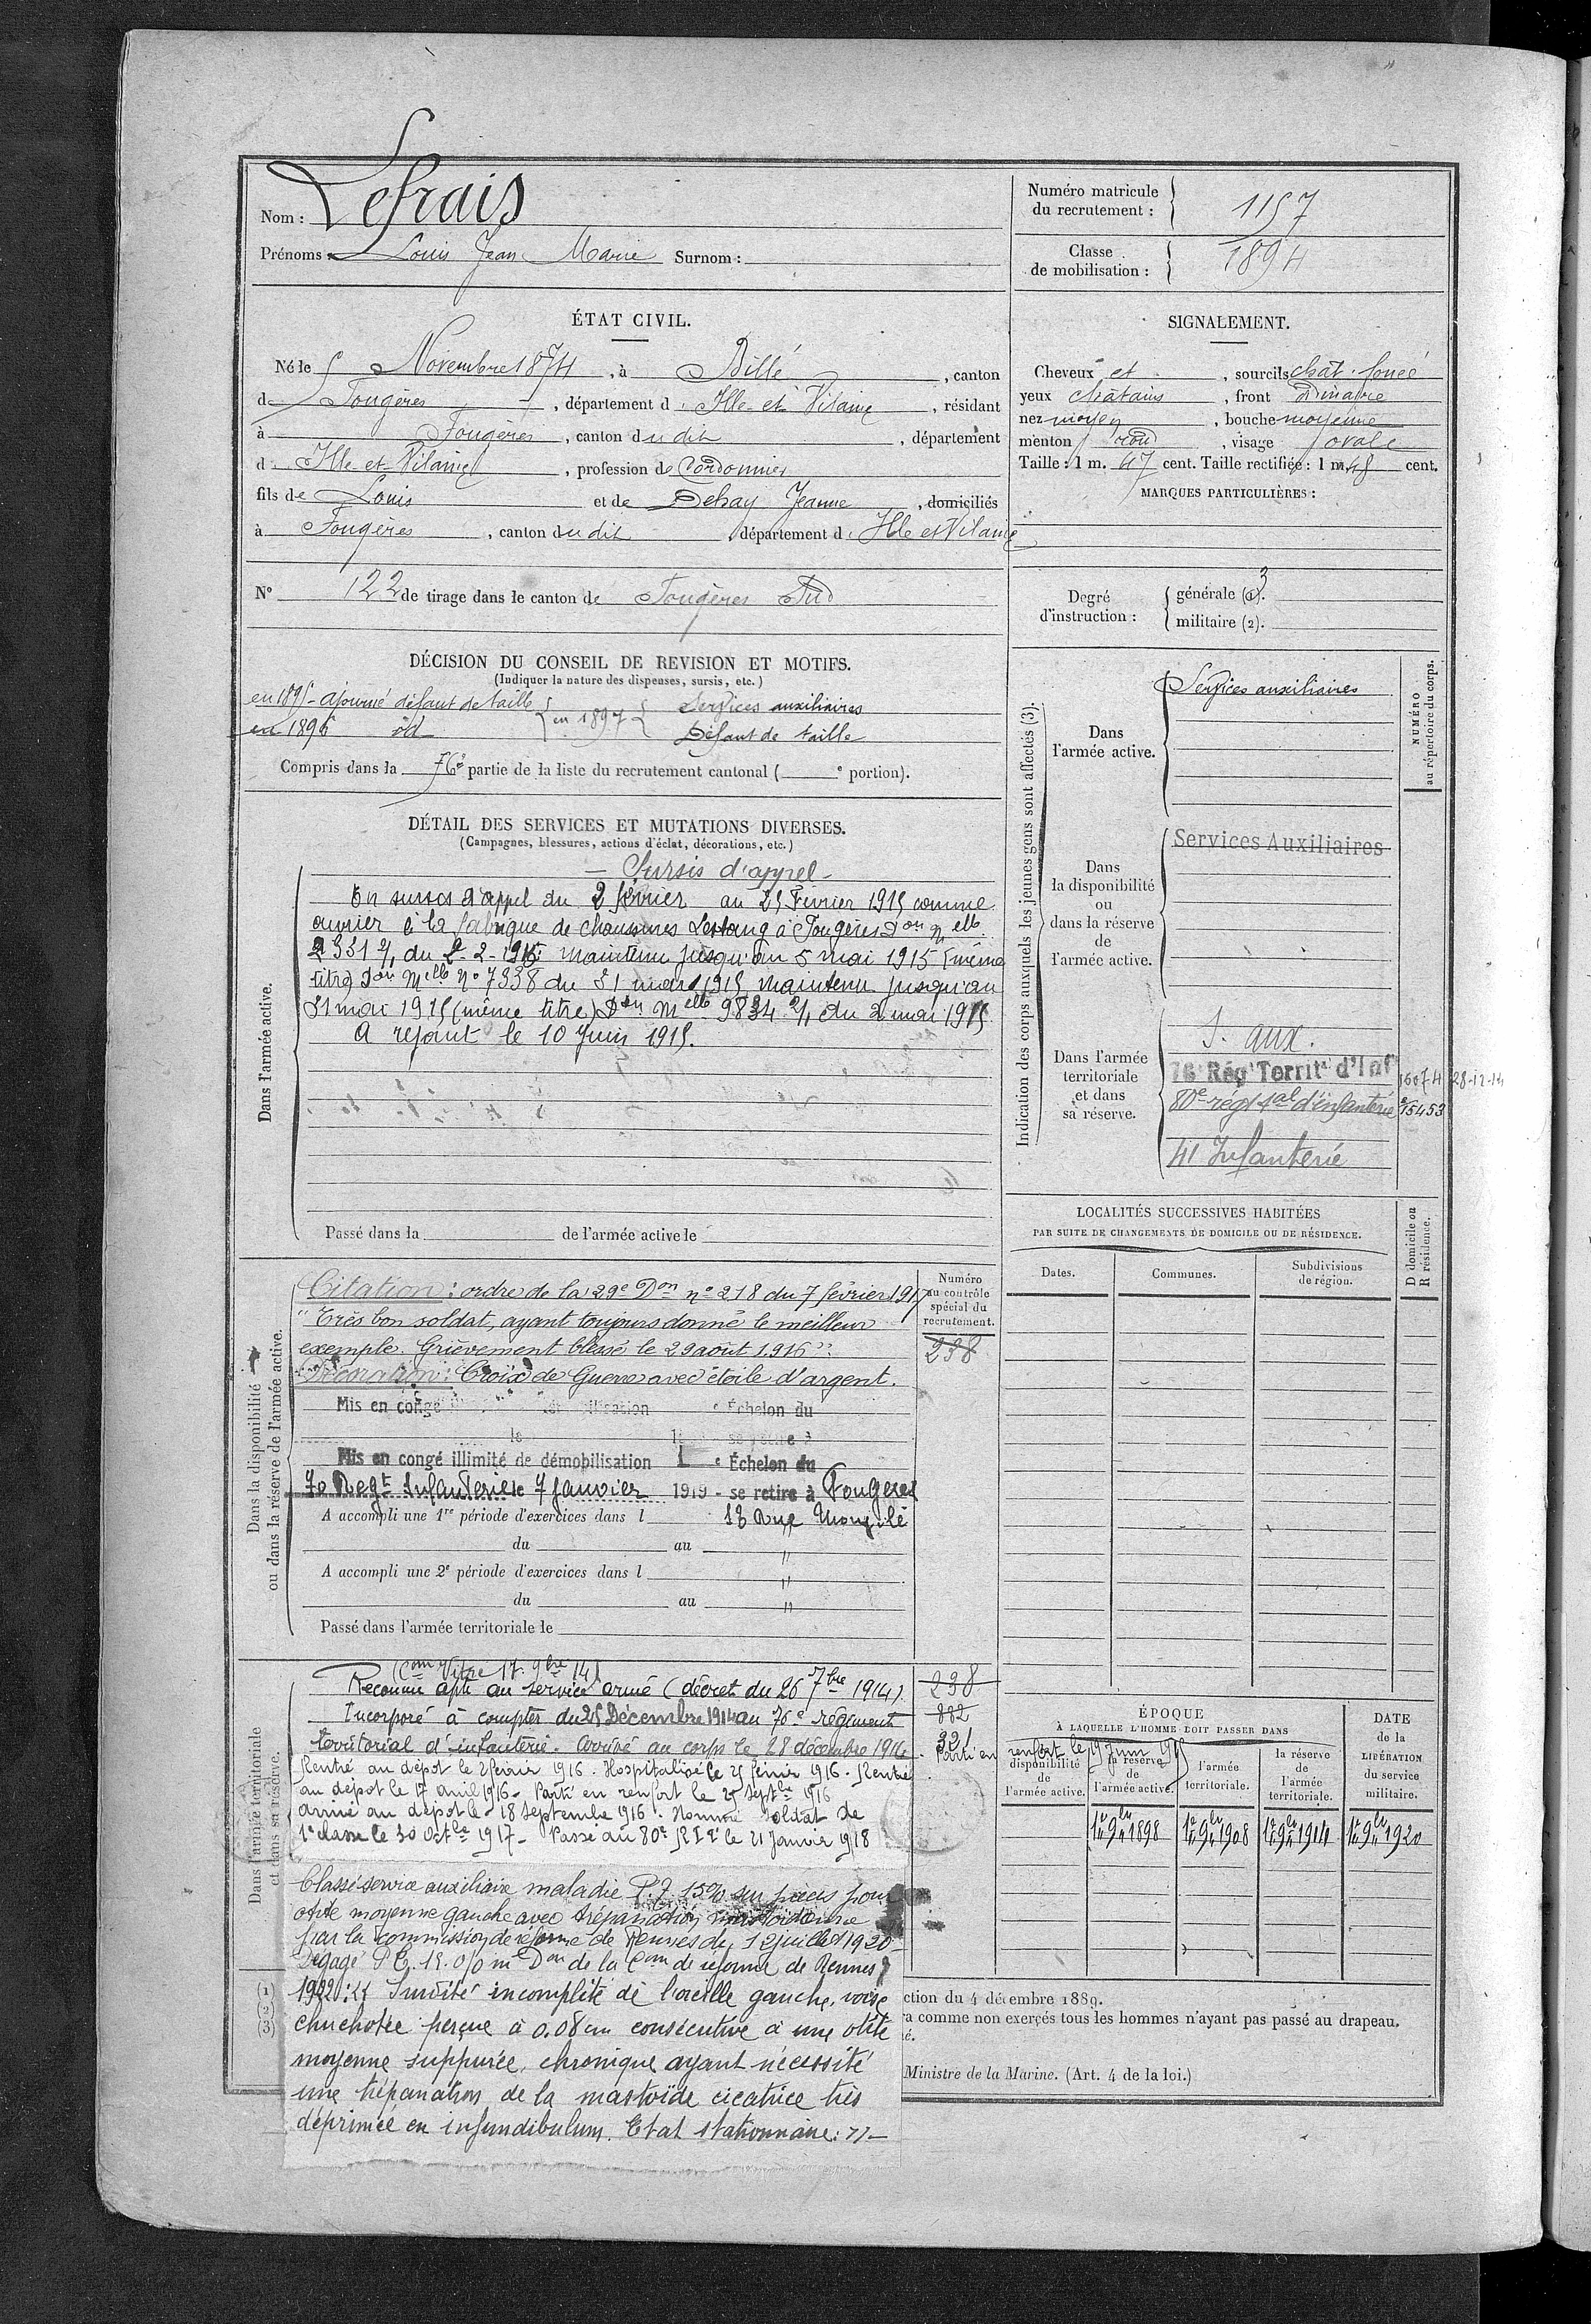 Nom : Lefrais
Prénoms : Louis Jean Marie Surnom :
Numéro matricule du recrutement : 1157
Classe de mobilisation : 1894
ÉTAT CIVIL.
Né le 5 Novembre 1874, à Billé, canton
d Fougères, département d Ille-et-Vilaine, résidant
à Fougères, canton dudit, département
d Ille-et-Vilaine, profession de Cordonnier
fils de Louis et de Dehay Jeanne, domiciliés
à Fougères, canton dudit département d Ille et Vilaine
N° 122 de tirage dans le canton de Fougères Sud
SIGNALEMENT.
Cheveux et , sourcils chât. foncé
yeux châtains, front Dinaire
nez moyen, bouche moyenne
menton rond, visage ovale
Taille : 1 m. 47 cent. Taille rectifiée : 1 m. 48 cent.
MARQUES PARTICULIÈRES :
Degré d'instruction : générale (1). 3
militaire (2).
DÉCISION DU CONSEIL DE REVISION ET MOTIFS.
(Indiquer la nature des dispenses, sursis, etc.)
en 1895 - ajourné défaut de taille
en 1896 id
en 1897 Services auxiliaires
Défaut de taille
Compris dans la 76e partie de la liste du recrutement cantonal ( e portion).
DÉTAIL DES SERVICES ET MUTATIONS DIVERSES.
(Campagnes, blessures, actions d'éclat, décorations, etc.)
Dans l'armée active.
- Sursis d'appel -
En sursis d'appel du 2 février au 25 Février 1915 comme
ouvrier à la fabrique de chaussures Lestang à Fougères Don Melle
2331 2/1 du 2-2-1915 maintenu jusqu'au 5 mai 1915 (même
titre) Don Melle No 7338 du 31 mars 1915 Maintenu jusqu'au
31 mai 1915 (même titre) Don Melle 9834 2/1 du 2 mai 1915
A rejoint le 10 Juin 1915.
Passé dans la de l'armée active le
Indication des corps auxquels les jeunes gens sont affectés (3).
NUMÉRO au répertoire du corps.
Dans l'armée active.
Services auxiliaires
Dans la disponibilité ou dans la réserve de l'armée active.
Services Auxiliaires
Dans l'armée territoriale et dans sa réserve.
S. aux.
76 Régt Territ d'Inf 16074 28-12-14
80e régt tal d'infanterie 15453
41 Infanterie
LOCALITÉS SUCCESSIVES HABITÉES
PAR SUITE DE CHANGEMENTS DE DOMICILE OU DE RÉSIDENCE.
Dates. Communes. Subdivisions de région. D domicile ou R résidence.
Dans la disponibilité ou dans la réserve de l'armée active.
Numéro au contrôle spécial du recrutement.
238
Citation : ordre de la 29e Don no 218 du 7 février 1917
"Très bon soldat, ayant toujours donné le meilleur
exemple. Grièvement blessé le 29 août 1916"
Décoration : Croix de Guerre avec étoile d'argent.
Mis en congé Échelon du
Mis en congé illimité de démobilisation Échelon du
70 Regt Infanterie le 7 Janvier 1919 - se retire à Fougères
A accompli une 1re période d'exercices dans l 18 Rue
du au
A accompli une 2e période d'exercices dans l
du au
Passé dans l'armée territoriale le
Dans l'armée territoriale et dans sa réserve.
(Com Vitré 17. 9bre 14)
Reconnu apte au service armé (décret du 26 7bre 1914). 238
Incorporé à compter du 25 Décembre 1914 au 76e régiment 882
territorial d'infanterie. Arrivé au corps le 28 décembre 1914 321
. Parti en renfort le 19 Juin 1915
Rentré au dépôt le 2 février 1916. Hospitalisé le 25 février 1916. Rentré
au dépôt le 17 avril 1916 - Parti en renfort le 25 Septbre 1916
arrivé au dépôt le 18 septembre 1916. Nommé soldat de
1e classe le 30 Octbre 1917 - Passé au 80e RIT le 21 Janvier 1918
Classé service auxiliaire maladie P.T. 15% sur pièces pour
otite moyenne gauche avec trépanation mastoïdienne
par la commission de réforme de Rennes du 12 juillet 1920
Dégagé P.T. 15 0/0 Don de la Com de réforme de Rennes
1922 : "Surdité incomplète de l'oreille gauche, voix
chuchotée perçue à 0.08cm consécutive à une otite
moyenne suppurée, chronique ayant nécessité
une trépanation de la mastoïde cicatrice très
déprimée en infundibulum. Etat stationnaire." -
ÉPOQUE
À LAQUELLE L'HOMME DOIT PASSER DANS
disponibilité de l'armée active.
la réserve de l'armée active.
l'armée territoriale.
la réserve de l'armée territoriale.
DATE de la LIBÉRATION du service militaire.
1er 9bre 1898 1er 9bre 1908 1er 9bre 1914 1er 9bre 1920
(1)
(2)
(3)
ction du 4 décembre 1889.
ra comme non exercés tous les hommes n'ayant pas passé au drapeau.
é.
Ministre de la Marine. (Art. 4 de la loi.)